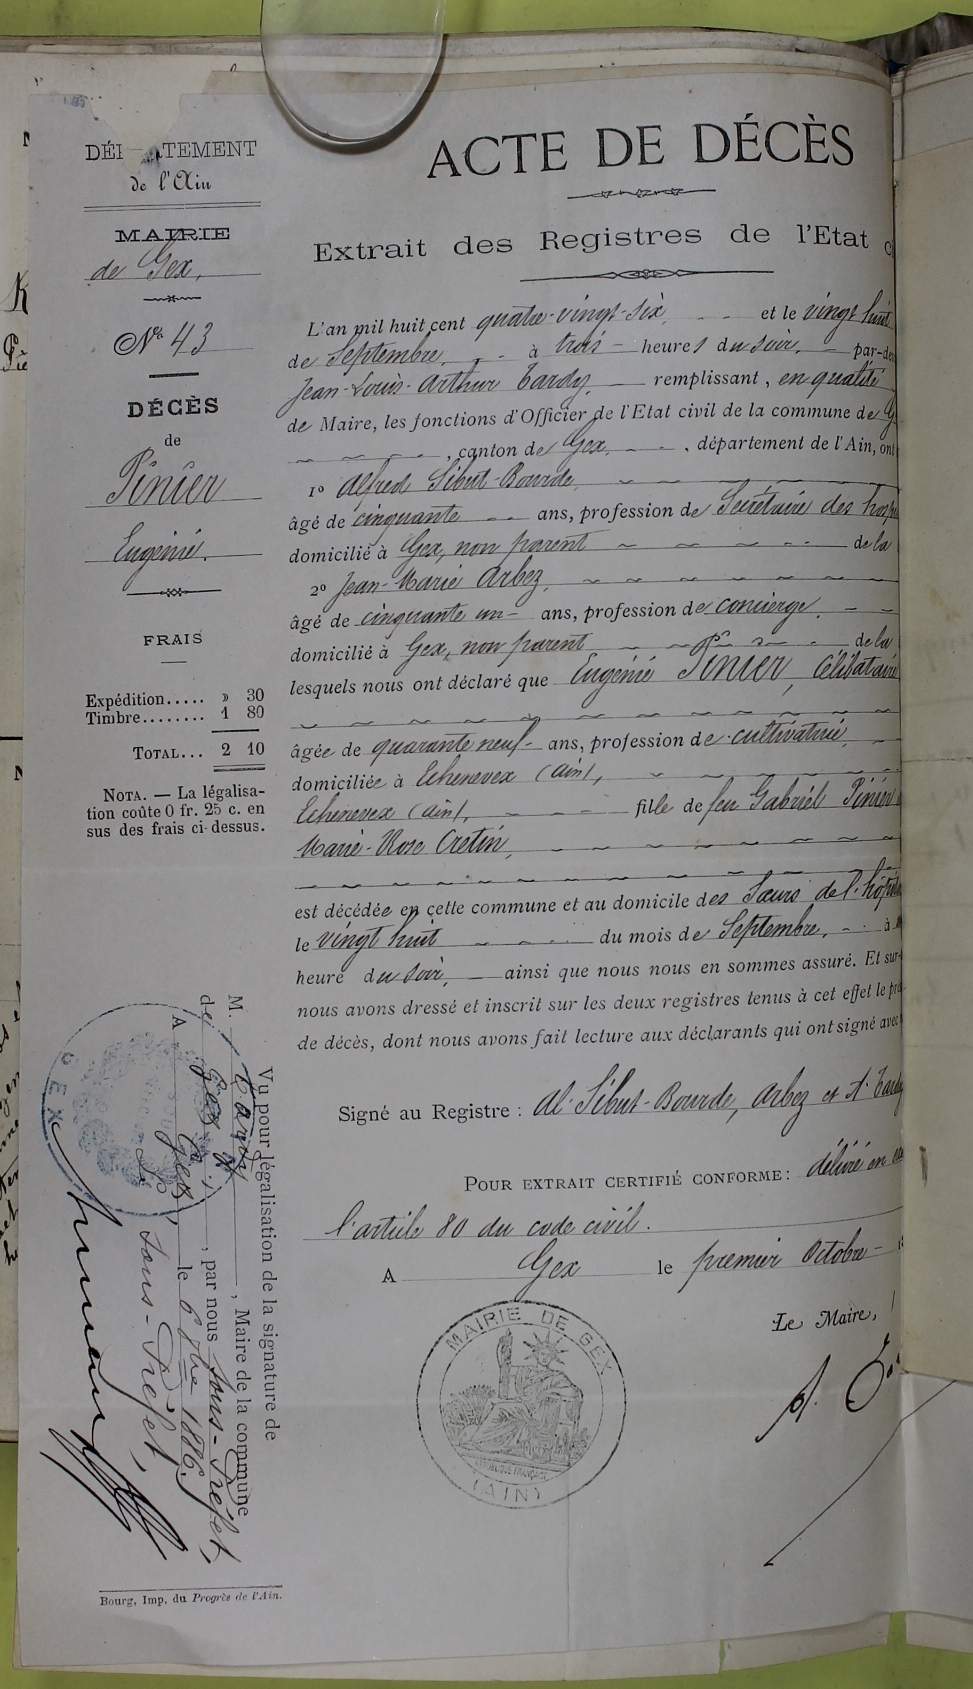 DÉPARTEMENT
de l'Ain
MAIRIE
de Gex,
No 43
DÉCÈS
de
Pinier
Eugénie.
FRAIS
Expédition..... » 30
Timbre........ 1 80
TOTAL... 2 10
NOTA. — La légalisa-
tion coûte 0 fr. 25 c. en
sus des frais ci-dessus.
ACTE DE DÉCÈS
Extrait des Registres de l'Etat c
L'an mil huit cent quatre-vingt-six, et le vingt huit
de Septembre, à trois heures du soir, par-de
Jean-Louis-Arthur Tardy, remplissant, en qualité
de Maire, les fonctions d'Officier de l'Etat civil de la commune de G
, canton de Gex, , département de l'Ain, ont
1o Alfred Sibut-Bourde,
âgé de cinquante ans, profession de Secrétaire des hosp
domicilié à Gex, non parent de la
2o Jean-Marie Arbez,
âgé de cinquante un ans, profession de concierge,
domicilié à Gex, non parent de la
lesquels nous ont déclaré que Eugénie Pinier, Célibataire
âgée de quarante neuf ans, profession de cultivatrice,
domiciliée à Echenevex (Ain),
Echenevex (Ain), fille de feu Gabriel Pinier
Marie-Rose Cretin,
est décédée en cette commune et au domicile des Sœurs de l'hôpital
le vingt huit du mois de Septembre, à
heure du soir, ainsi que nous nous en sommes assuré. Et sur-
nous avons dressé et inscrit sur les deux registres tenus à cet effet le pré
de décès, dont nous avons fait lecture aux déclarants qui ont signé avec
Signé au Registre : Al. Sibut-Bourde, Arbez et A. Tardy
POUR EXTRAIT CERTIFIÉ CONFORME : délivré en
l'article 80 du code civil.
A Gex le premier Octobre
Le Maire,
A. T
MAIRIE DE GEX
RÉPUBLIQUE FRANÇAISE
(AIN)
Vu pour légalisation de la signature de
M. Tardy, Maire de la commune
de Gex, par nous Sous-Préfet,
A Gex, le 6 8bre 1886.
Le Sous-Préfet,
GEX
Bourg, Imp. du Progrès de l'Ain.